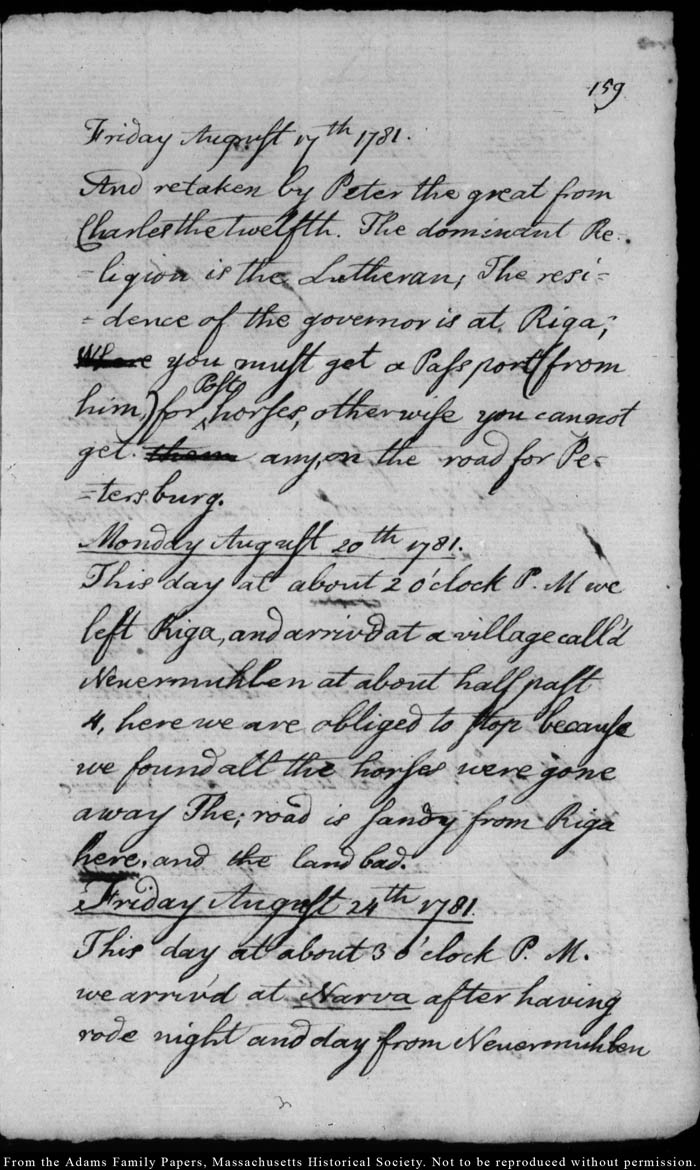 159
Friday August 17th 1781.
And retaken by Peter the great from
Charles the twelfth. The dominant Re-
-ligion is the Lutheran; The resi=
=dence of the governor is at Riga;
Where you must get a Passport (from
him,) for Post horses, otherwise you cannot
get them any, on the road for Pe-
-tersburg.
Monday August 20th 1781.
This day at about 2 o'clock P. M we
left Riga, and arriv'd at a village call'd
Neuermuhlen at about half past
4, here we are obliged to stop because
we found all the horses were gone
away The; road is sandy from Riga
here, and the land bad.
Friday August 24th 1781.
This day at about 3 o'clock P. M.
we arriv'd at Narva after having
rode night and day from Neuermuhlen
From the Adams Family Papers, Massachusetts Historical Society. Not to be reproduced without permission.